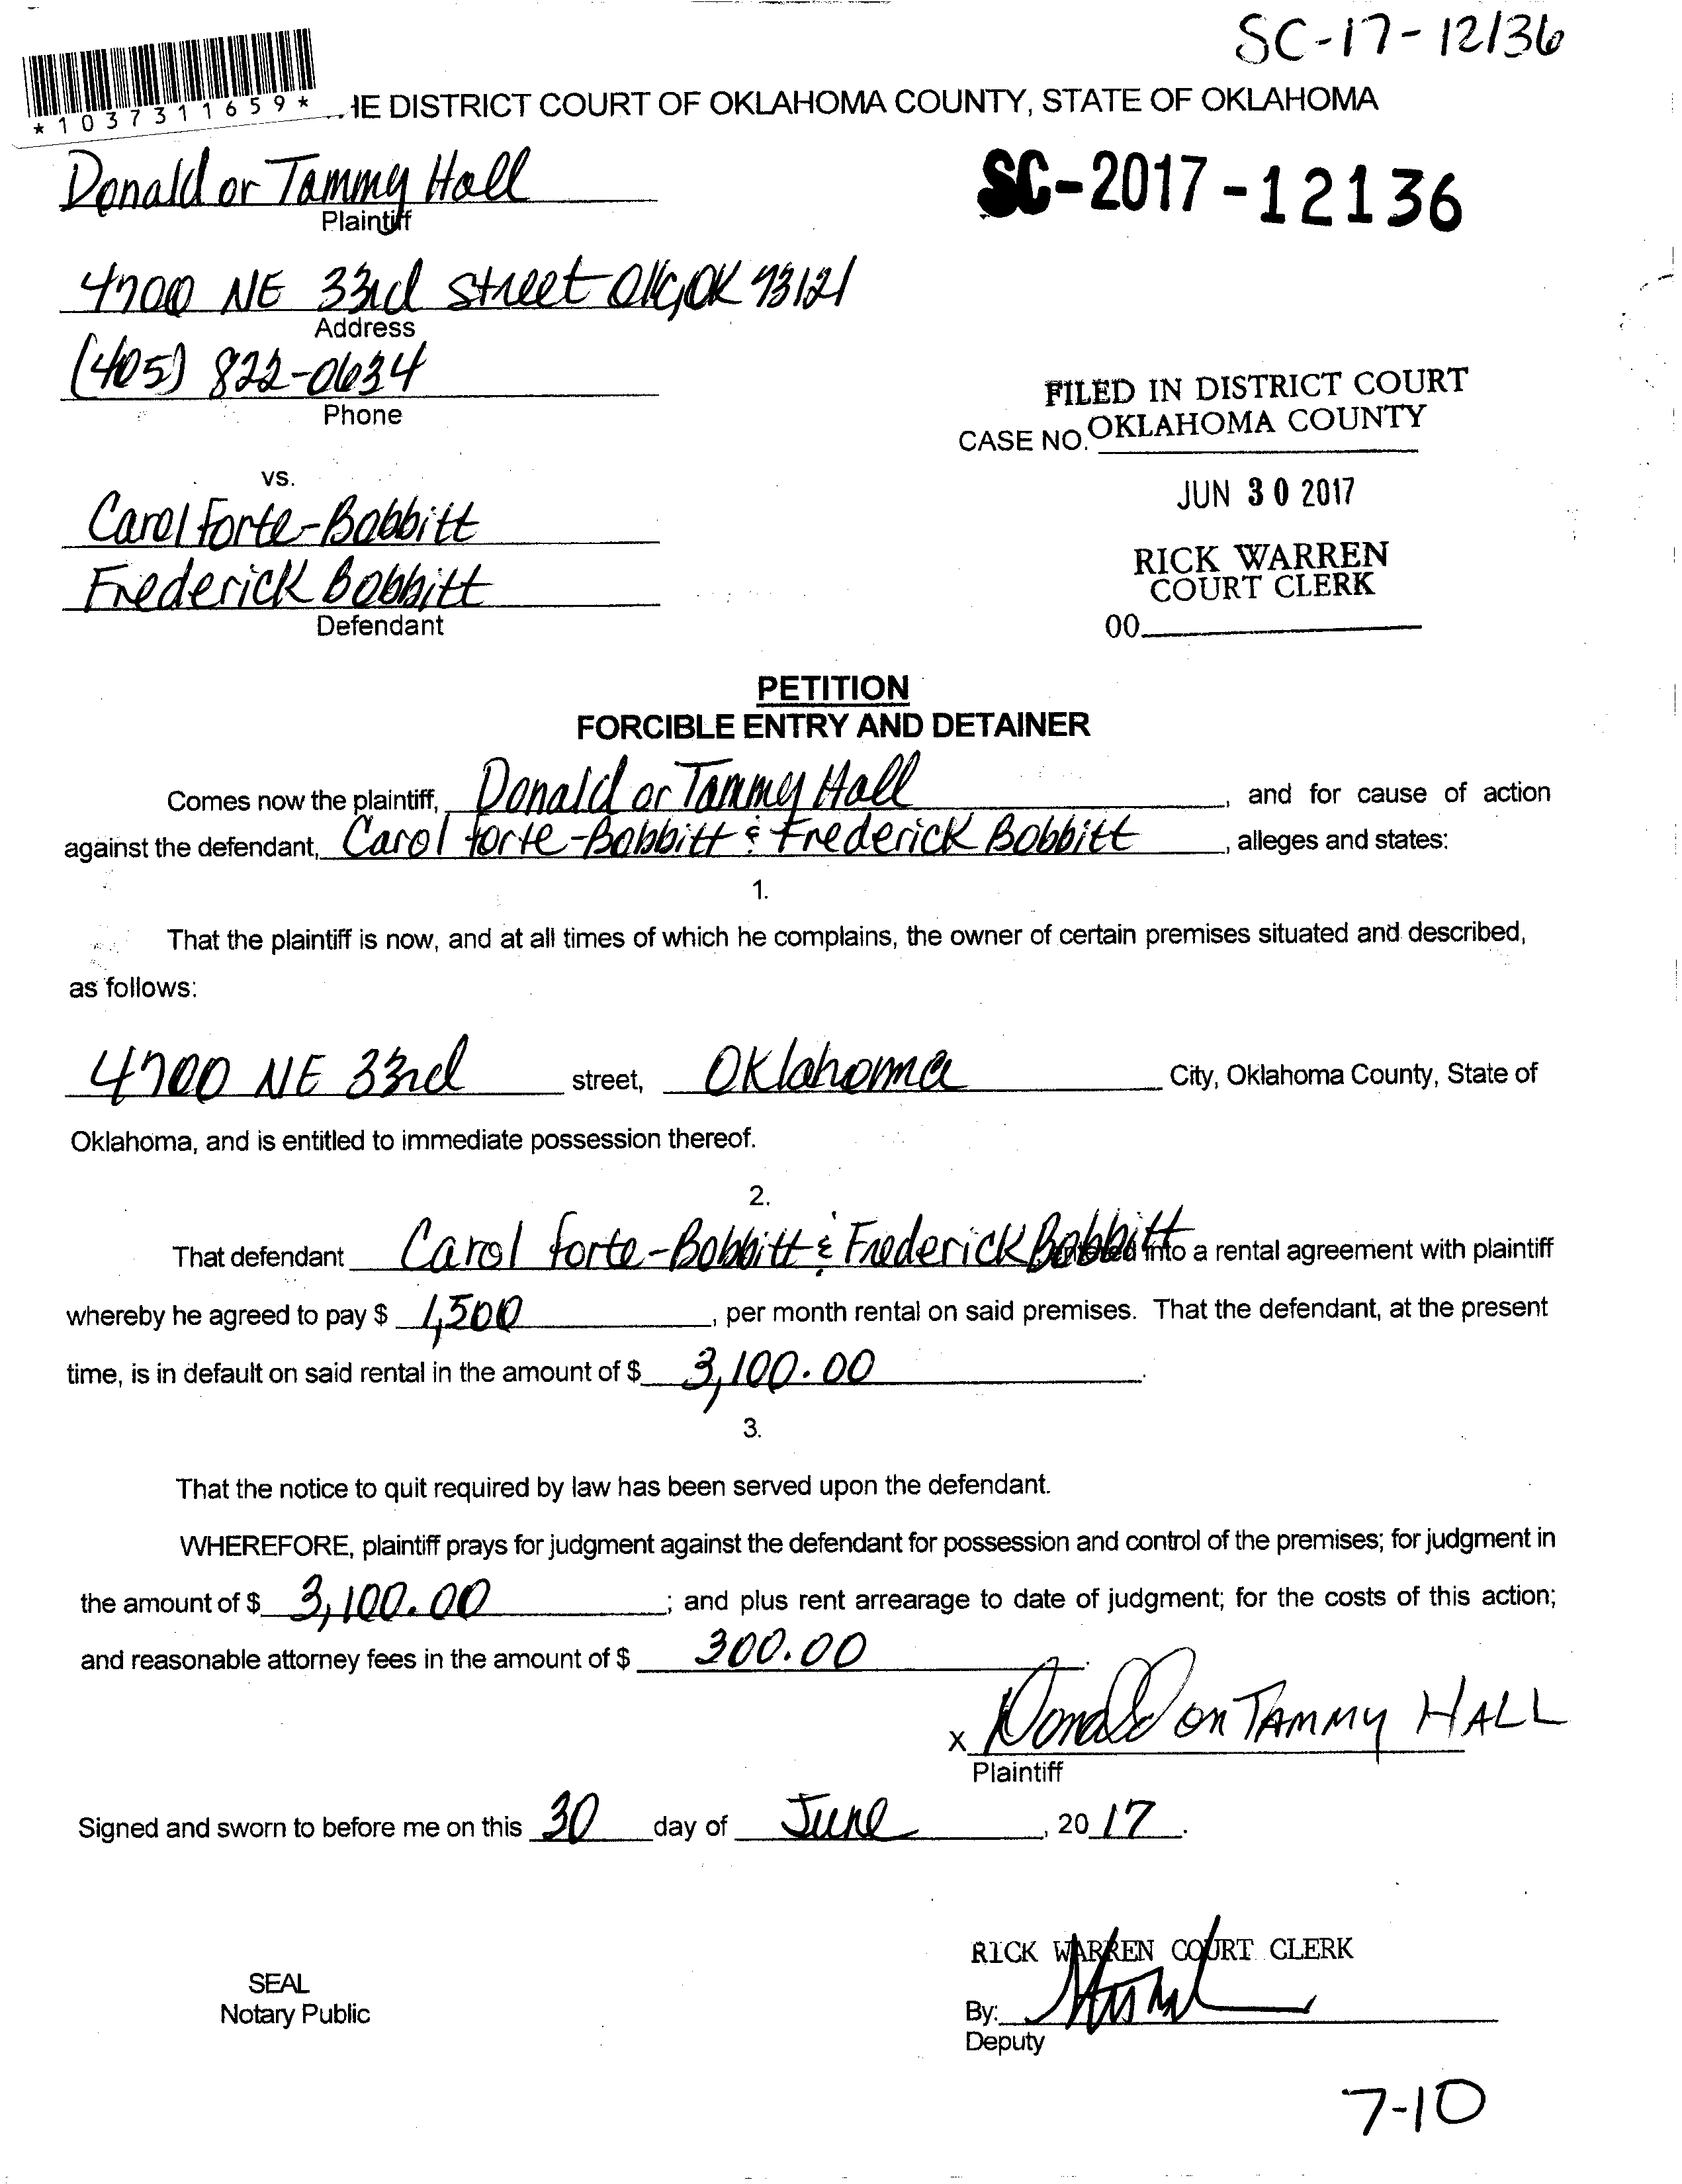 SC-17-12136
*1037311659*
HE DISTRICT COURT OF OKLAHOMA COUNTY, STATE OF OKLAHOMA
Donald or Tammy Hall
Plaintiff
SC-2017-12136
4700 NE 33rd Street OKC, OK 73121
Address
(405) 822-0634
Phone
FILED IN DISTRICT COURT
OKLAHOMA COUNTY
CASE NO.
JUN 30 2017
vs.
Carol Forte-Bobbitt
Frederick Bobbitt
Defendant
RICK WARREN
COURT CLERK
00
PETITION
FORCIBLE ENTRY AND DETAINER
Comes now the plaintiff, Donald or Tammy Hall, and for cause of action
against the defendant, Carol Forte-Bobbitt & Frederick Bobbitt, alleges and states:
1.
That the plaintiff is now, and at all times of which he complains, the owner of certain premises situated and described,
as follows:
4700 NE 33rd street, Oklahoma City, Oklahoma County, State of
Oklahoma, and is entitled to immediate possession thereof.
2.
That defendant Carol Forte-Bobbitt & Frederick Bobbitt entered into a rental agreement with plaintiff
whereby he agreed to pay $ 1,500, per month rental on said premises. That the defendant, at the present
time, is in default on said rental in the amount of $ 3,100.00.
3.
That the notice to quit required by law has been served upon the defendant.
WHEREFORE, plaintiff prays for judgment against the defendant for possession and control of the premises; for judgment in
the amount of $ 3,100.00; and plus rent arrearage to date of judgment; for the costs of this action;
and reasonable attorney fees in the amount of $ 300.00.
x Donald or TAMMY HALL
Plaintiff
Signed and sworn to before me on this 30 day of June, 2017.
RICK WARREN COURT CLERK
SEAL
Notary Public
By:
Deputy
7-10